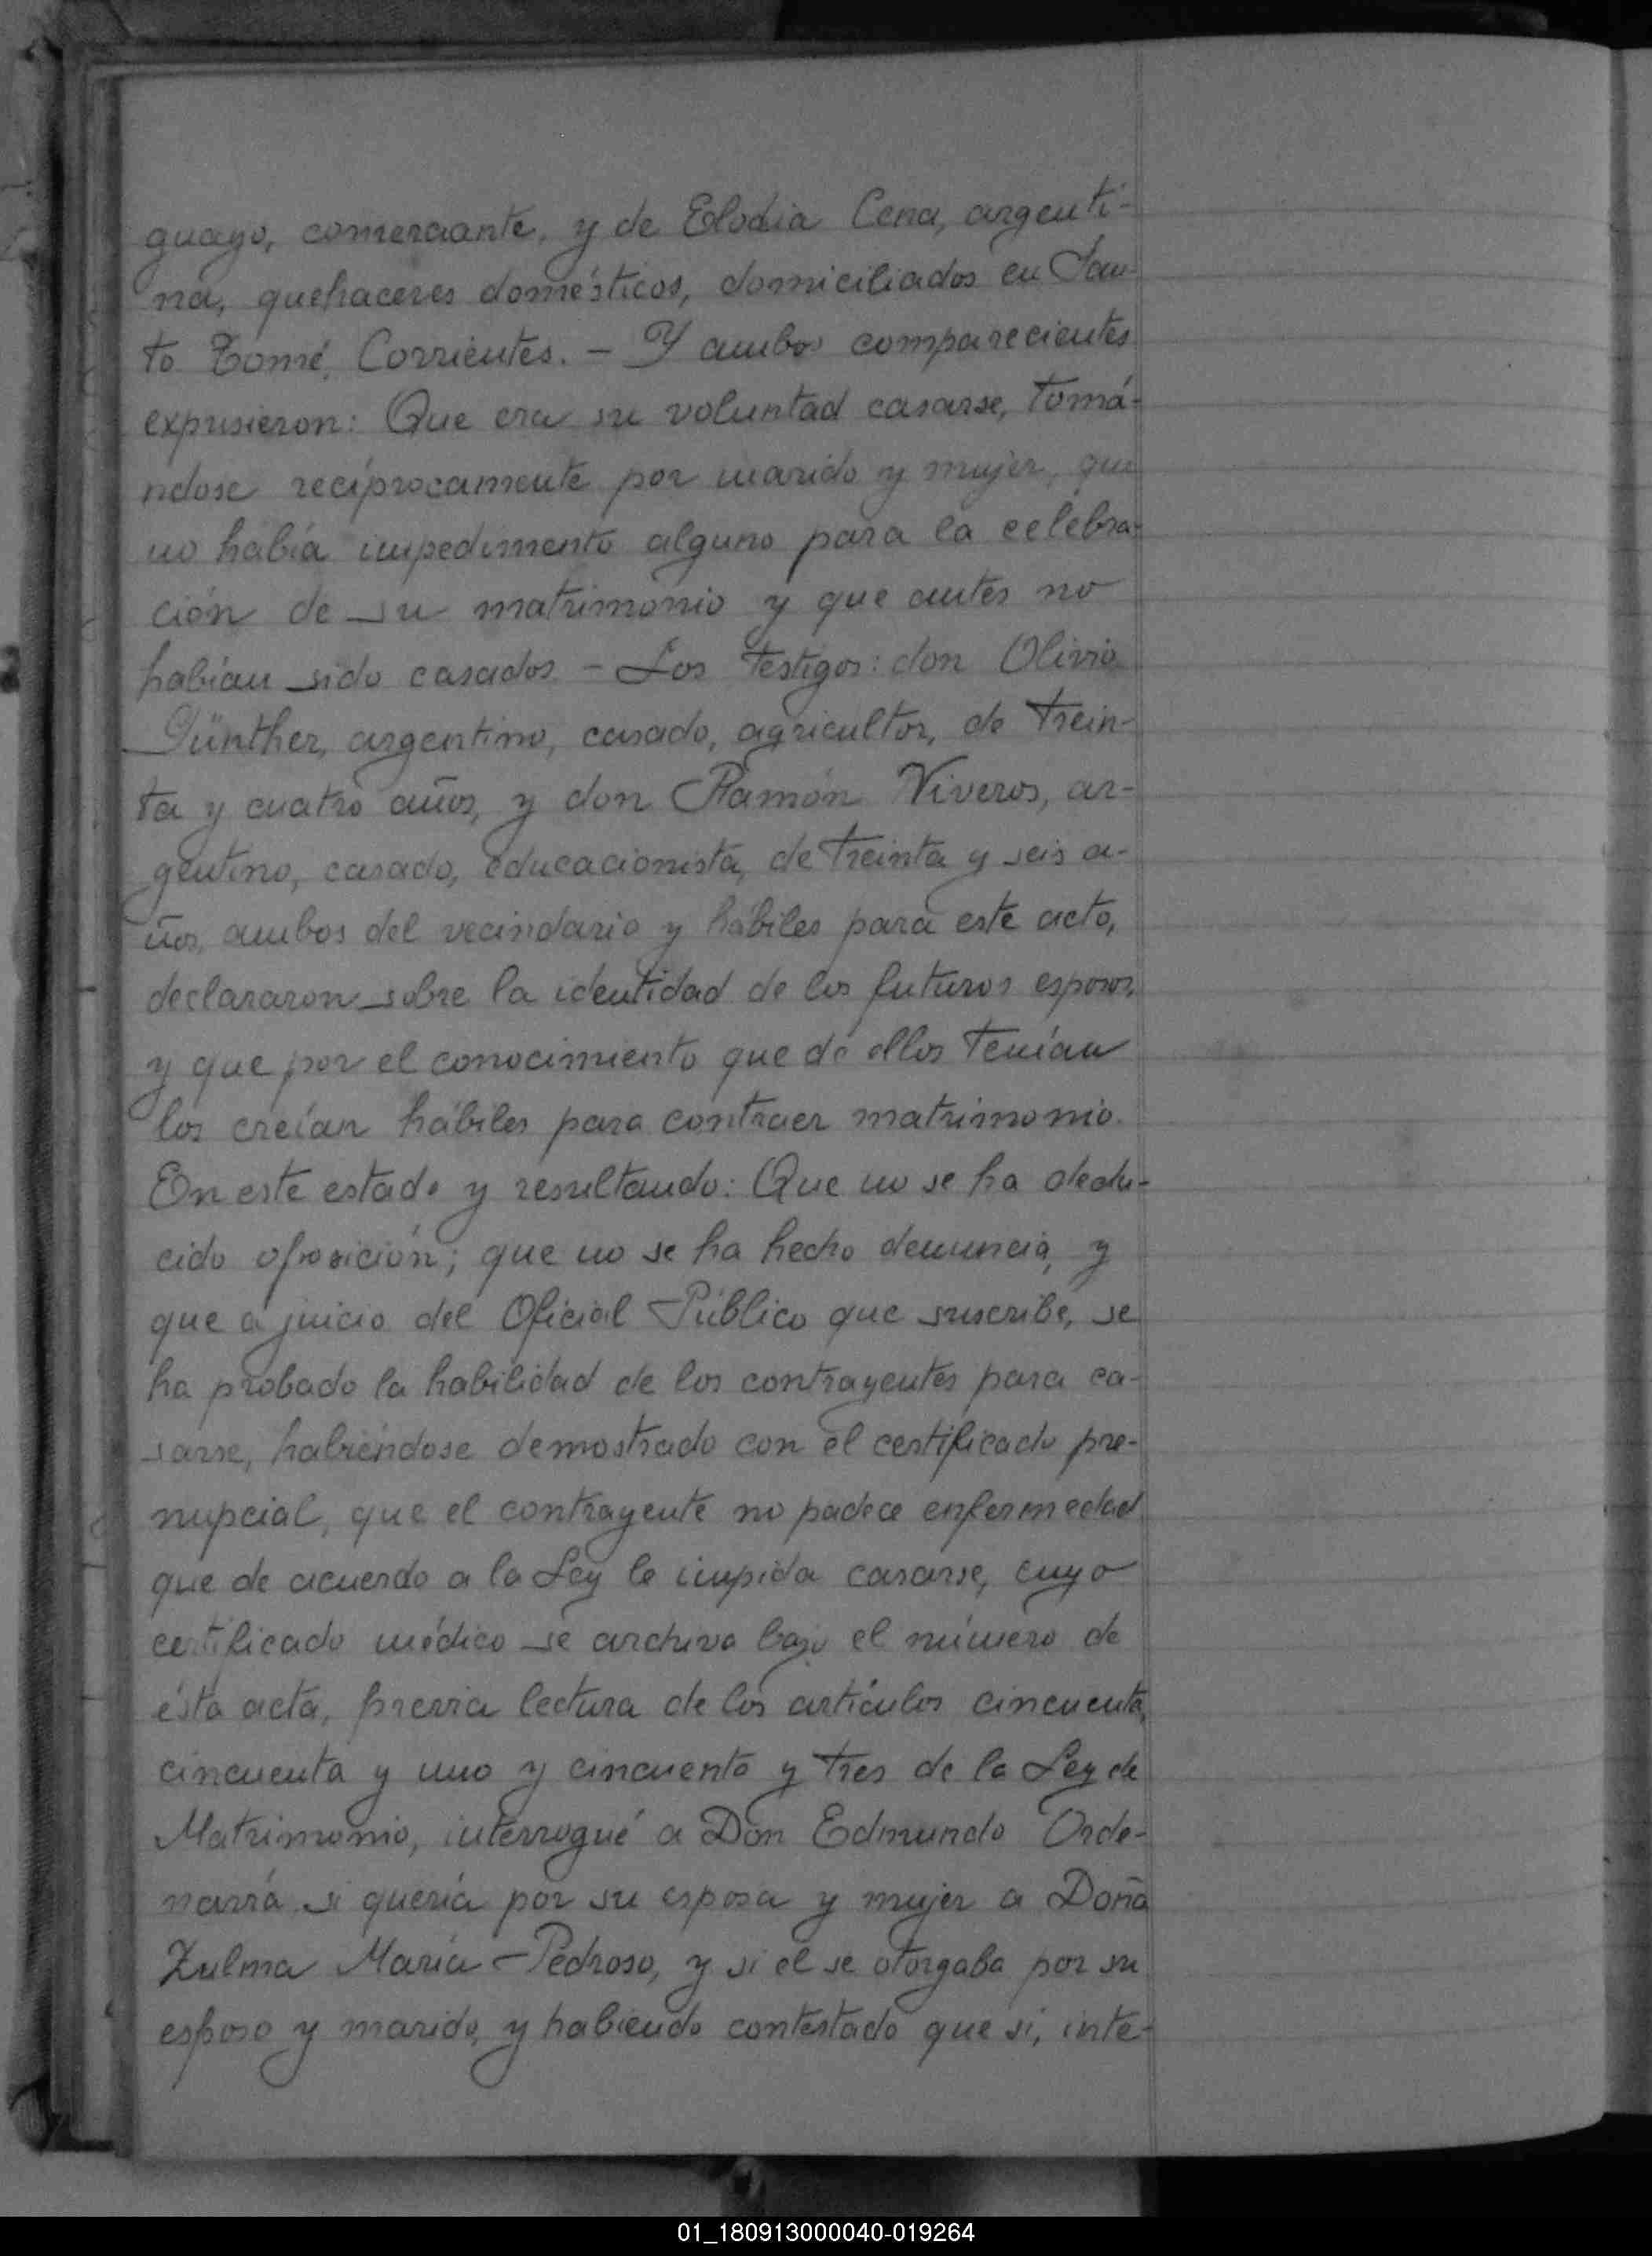 guayo, comerciante, y de Elodia Cena, argenti-
na, quehaceres domésticos, domiciliados en San-
to Tomé, Corrientes. - Y ambos comparecientes
expusieron: Que era su voluntad casarse, tomá-
ndose recíprocamente por marido y mujer, que
no había impedimento alguno para la celebra-
ción de su matrimonio y que antes no
habían sido casados - Los testigos: don Olivio
Günther, argentino, casado, agricultor, de trein-
ta y cuatro años, y don Ramón Viveros, ar-
gentino, casado, educacionista, de treinta y seis a-
ños, ambos del vecindario y hábiles para este acto,
declararon sobre la identidad de los futuros esposos,
y que por el conocimiento que de ellos tenían
los creían hábiles para contraer matrimonio.
En este estado y resultando: Que no se ha dedu-
cido oposición; que no se ha hecho denuncia, y
que a juicio del Oficial Público que suscribe, se
ha probado la habilidad de los contrayentes para ca-
sarse, habiéndose demostrado con el certificado pre-
nupcial, que el contrayente no padece enfermedad
que de acuerdo a la Ley le impida casarse, cuyo
certificado médico se archiva bajo el número de
ésta acta, previa lectura de los artículos cincuenta,
cincuenta y uno y cincuenta y tres de la Ley de
Matrimonio, interrogué a Don Edmundo Orde-
narra si quería por su esposa y mujer a Doña
Zulma María Pedroso, y si el se otorgaba por su
esposo y marido, y habiendo contestado que si, inte-
01_180913000040-019264